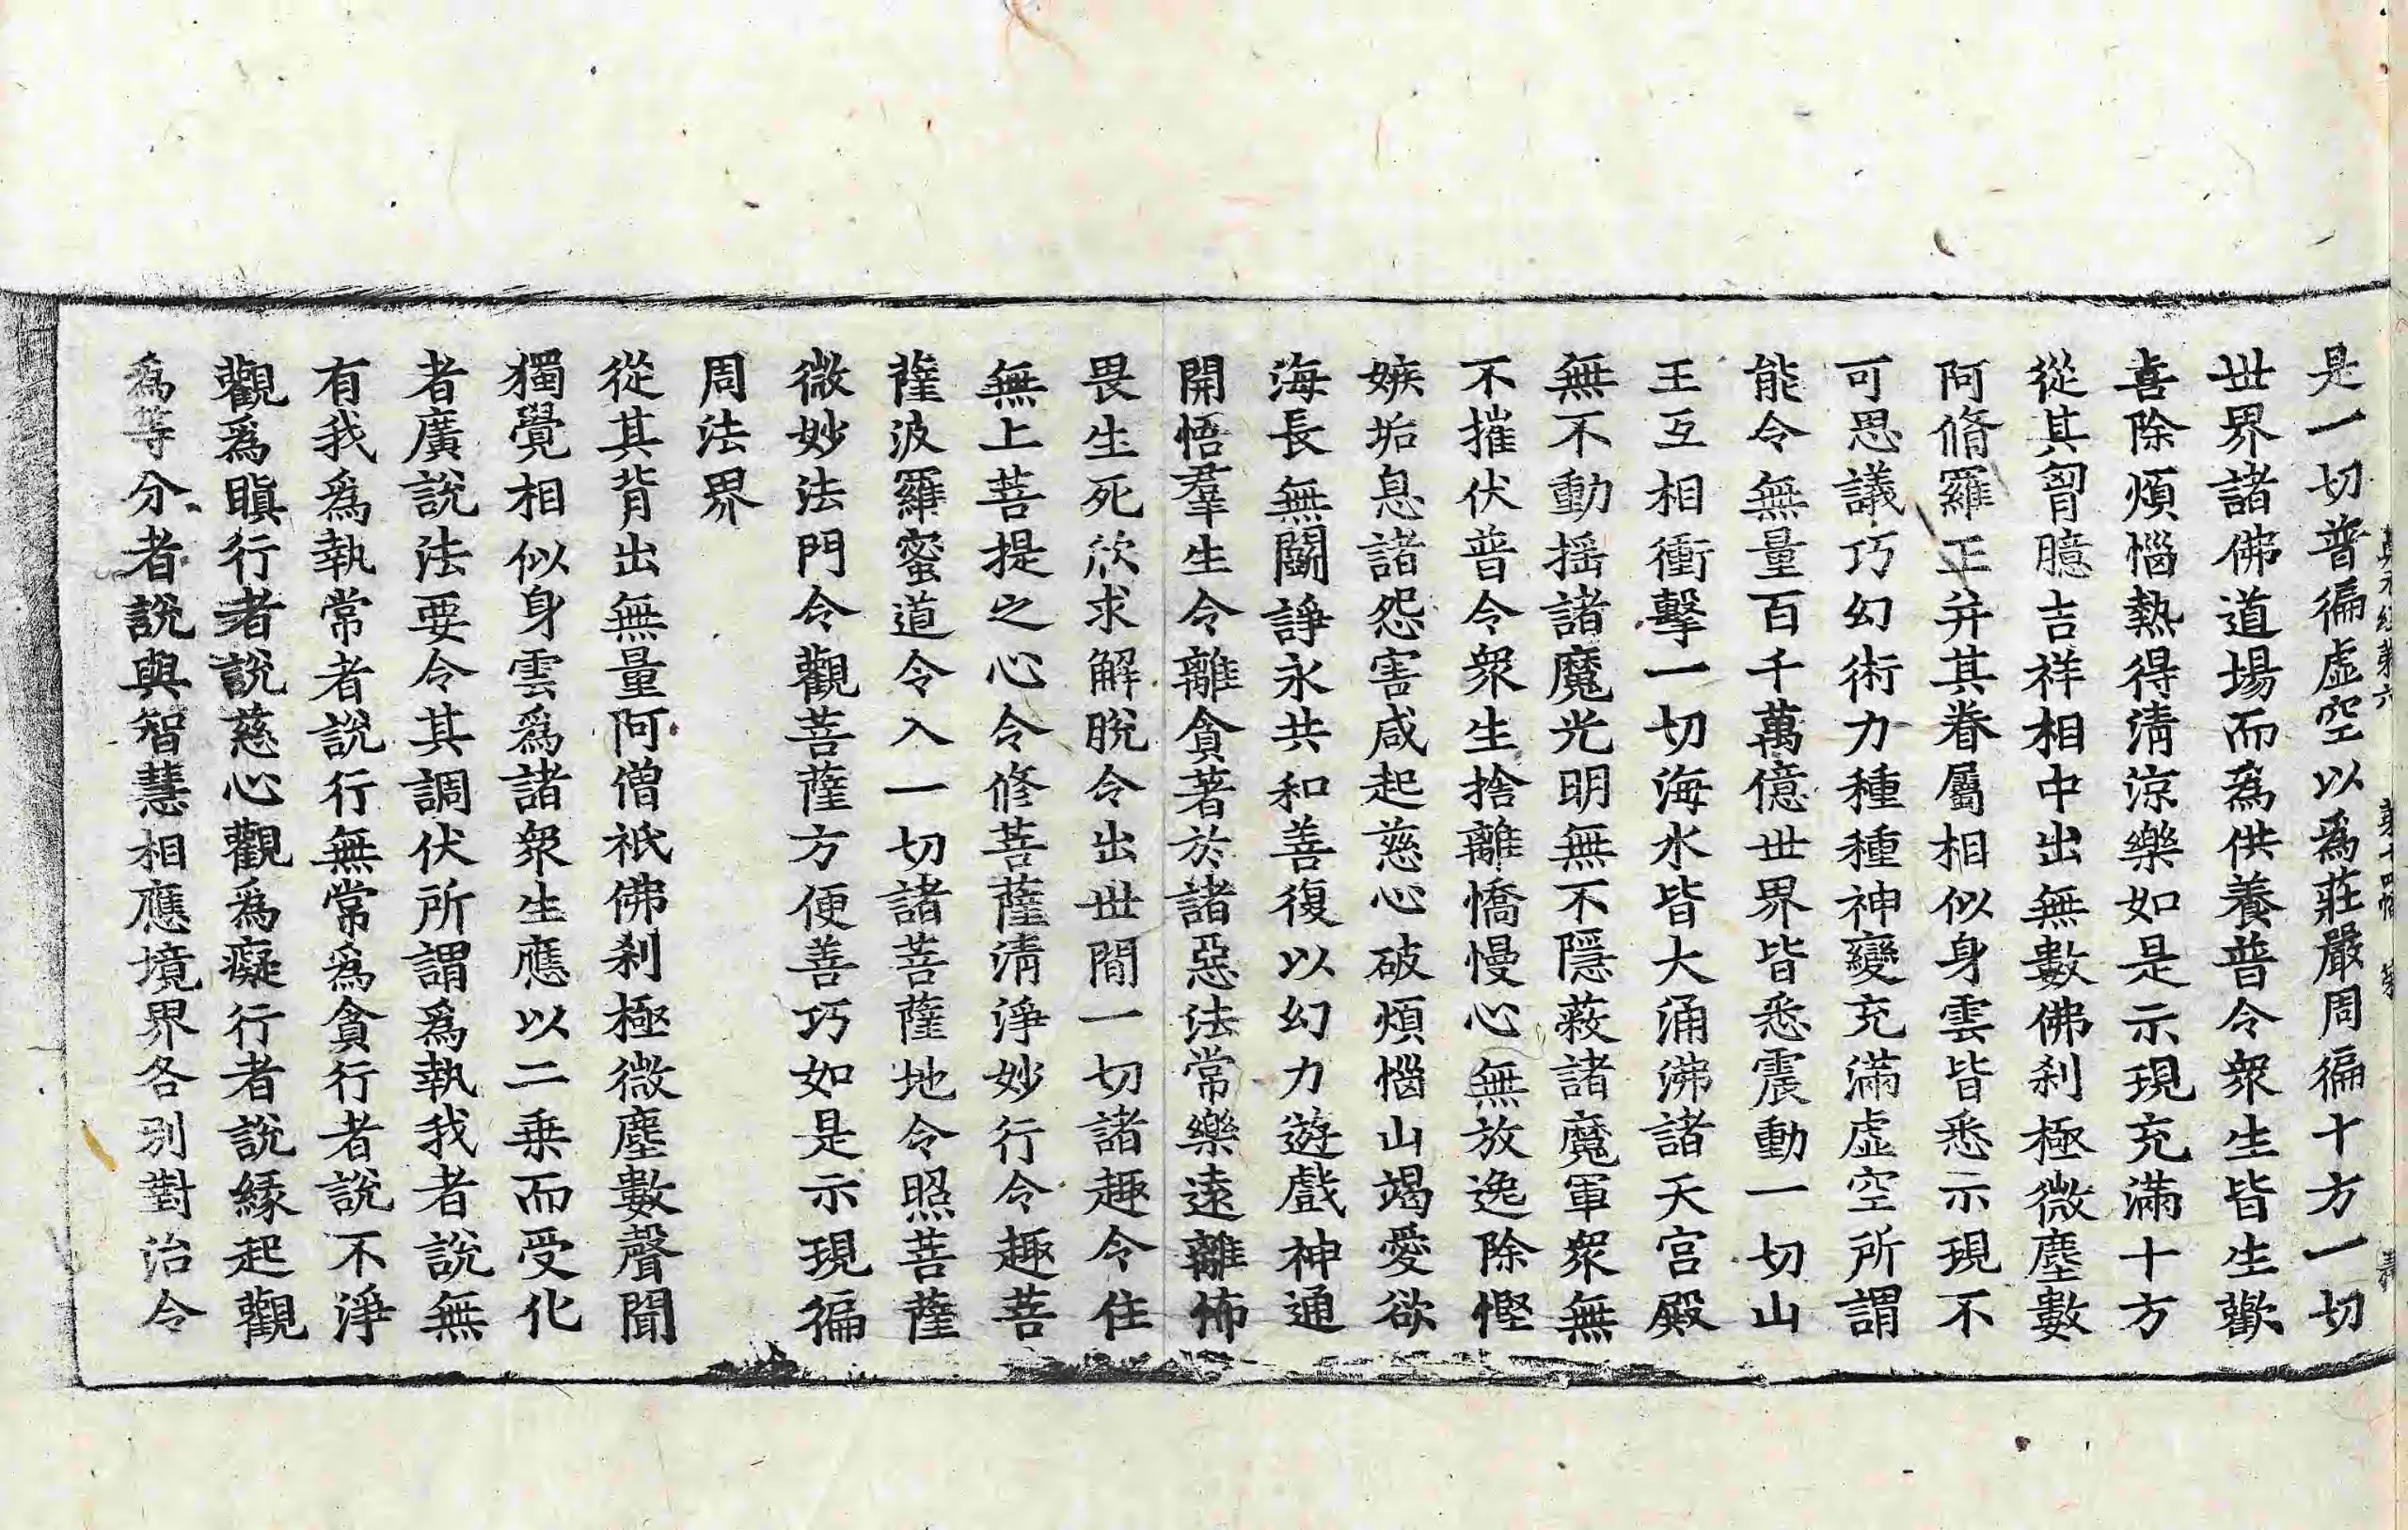 是一切普徧虛空以爲莊嚴周徧十方一切
世界諸佛道場而爲供養普令衆生皆生歡
喜除煩惱熱得淸涼樂如是示現充滿十方
從其胷臆吉祥相中出無數佛刹極微塵數
阿脩羅王并其眷屬相似身雲皆悉示現不
可思議巧幻術力種種神變充滿虛空所謂
能令無量百千萬億世界皆悉震動一切山
王互相衝擊一切海水皆大涌沸諸天宮殿
無不動揺諸魔光明無不隱蔽諸魔軍衆無
不摧伏普令衆生捨離憍慢心無放逸除慳
嫉垢息諸怨害咸起慈心破煩惱山竭愛欲
海長無鬪諍永共和善復以幻力遊戲神通
開悟羣生令離貪著於諸惡法常樂遠離怖
畏生死欣求解脫令出世閒一切諸趣令住
無上菩提之心令修菩薩淸淨妙行令趣菩
薩波羅蜜道令入一切諸菩薩地令照菩薩
微妙法門令觀菩薩方便善巧如是示現徧
周法界
從其背出無量阿僧祇佛刹極微塵數聲聞
獨覺相似身雲爲諸衆生應以二乗而受化
者廣說法要令其調伏所謂爲執我者說無
有我爲執常者說行無常爲貪行者說不淨
觀爲瞋行者說慈心觀爲癡行者說緣起觀
爲等分者說與智慧相應境界各別對治令